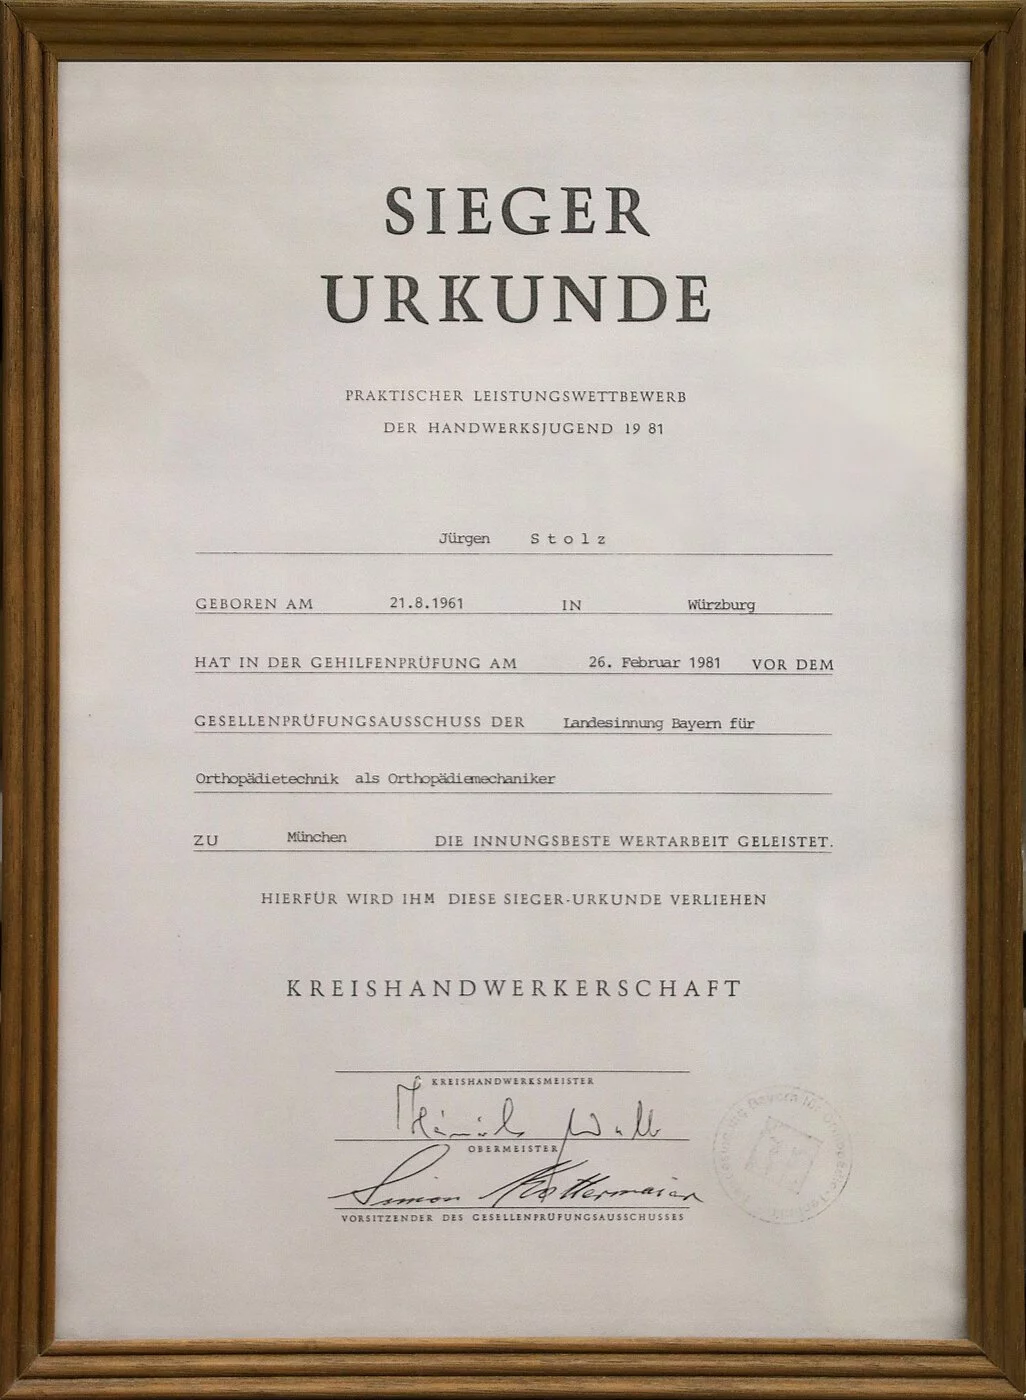 SIEGER
URKUNDE
PRAKTISCHER LEISTUNGSWETTBEWERB
DER HANDWERKSJUGEND 19 81
Jürgen Stolz
GEBOREN AM 21.8.1961 IN Würzburg
HAT IN DER GEHILFENPRÜFUNG AM 26. Februar 1981 VOR DEM
GESELLENPRÜFUNGSAUSSCHUSS DER Landesinnung Bayern für
Orthopädietechnik als Orthopädiemechaniker
ZU München DIE INNUNGSBESTE WERTARBEIT GELEISTET.
HIERFÜR WIRD IHM DIESE SIEGER-URKUNDE VERLIEHEN
KREISHANDWERKERSCHAFT
KREISHANDWERKSMEISTER
OBERMEISTER
Simon
VORSITZENDER DES GESELLENPRÜFUNGSAUSSCHUSSES
Bayern für